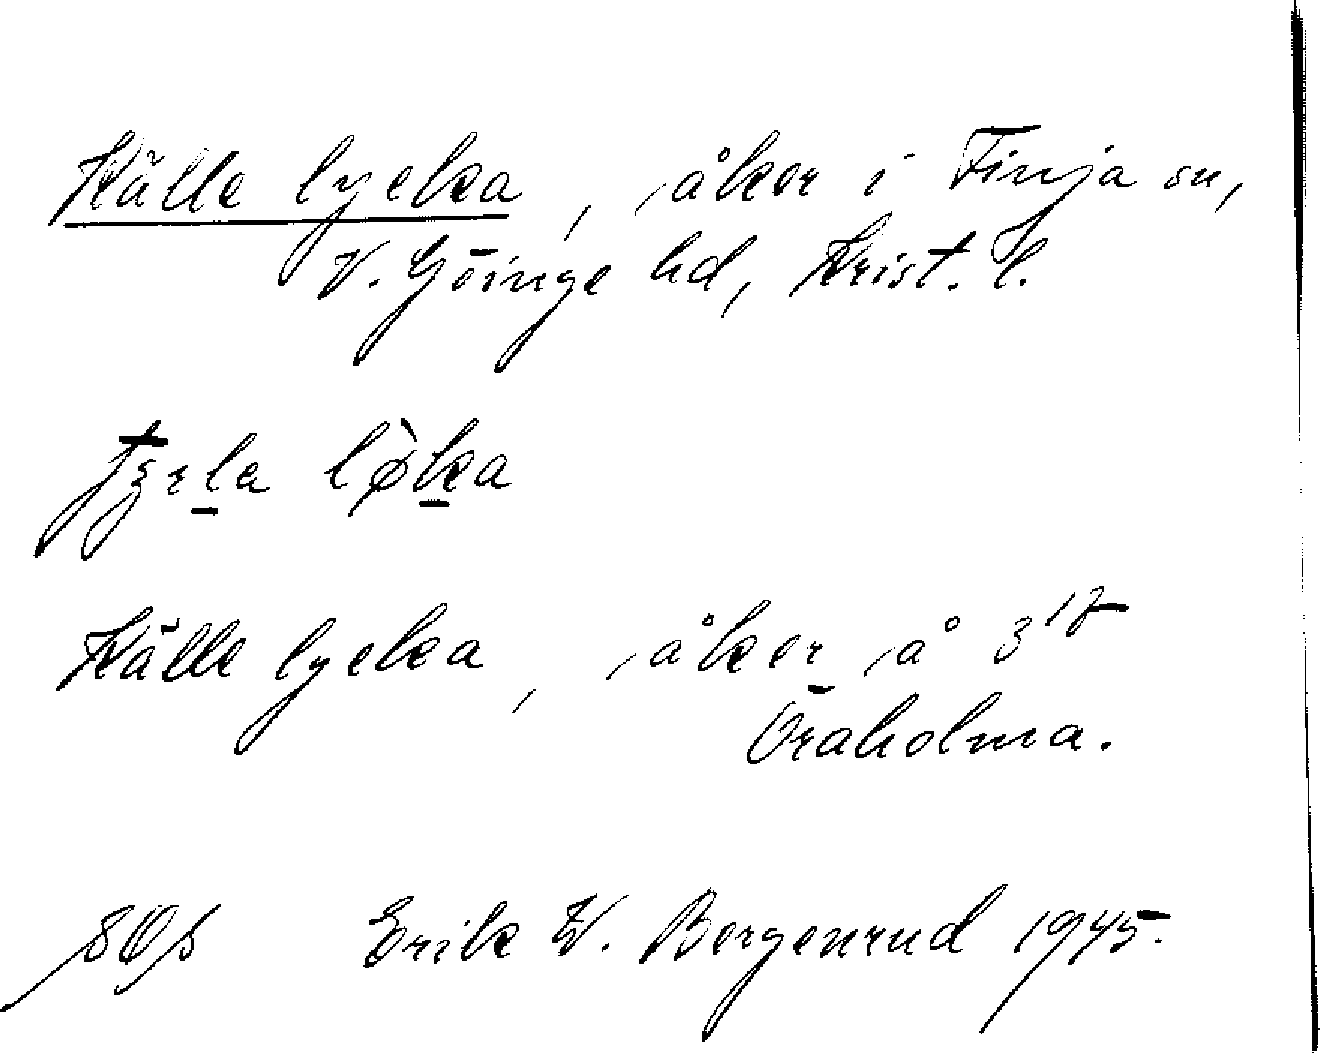 Källe lycka, åker i Finja sn,
V. Göinge hd, Krist. l.
løka
Källe lycka, åker å 3¹⁷
Öraholma.
Erik W. Bergenrud 1945.